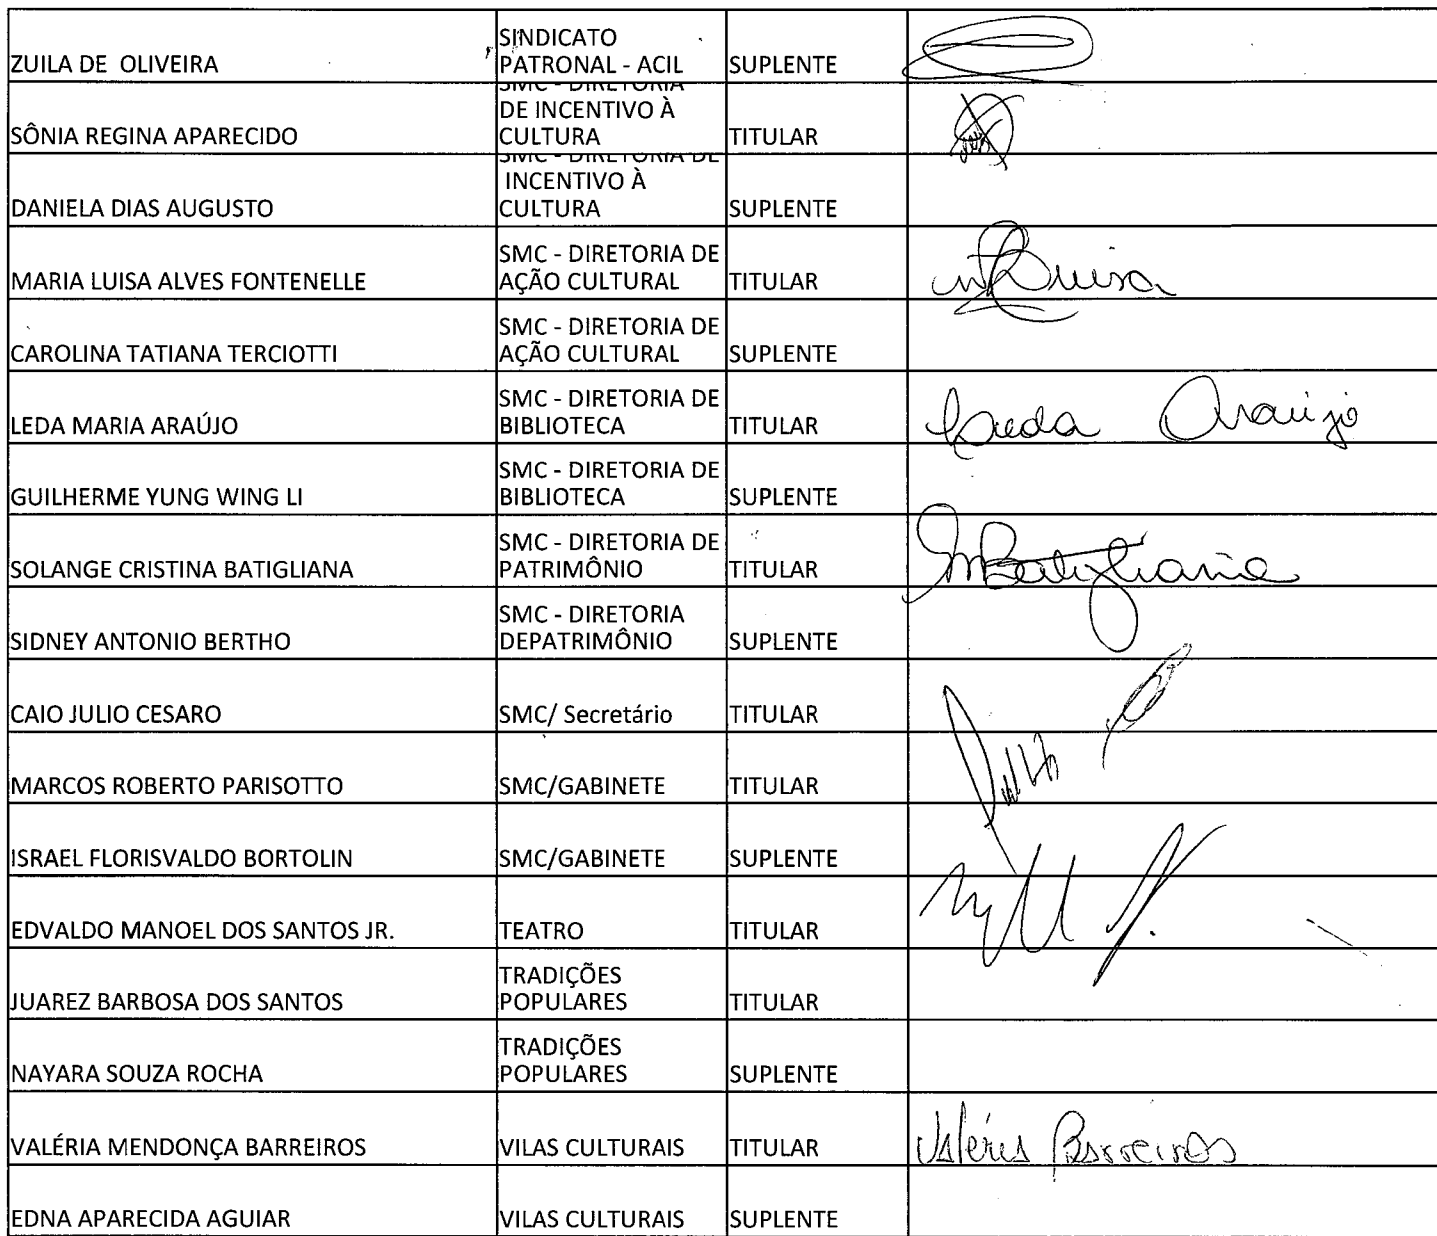 ZUILA DE OLIVEIRA
SINDICATO
PATRONAL - ACIL
SUPLENTE
SÔNIA REGINA APARECIDO
SMC - DIRETORIA
DE INCENTIVO À
CULTURA
TITULAR
DANIELA DIAS AUGUSTO
SMC - DIRETORIA DE
INCENTIVO À
CULTURA
SUPLENTE
MARIA LUISA ALVES FONTENELLE
SMC - DIRETORIA DE
AÇÃO CULTURAL
TITULAR
Luisa
CAROLINA TATIANA TERCIOTTI
SMC - DIRETORIA DE
AÇÃO CULTURAL
SUPLENTE
LEDA MARIA ARAÚJO
SMC - DIRETORIA DE
BIBLIOTECA
TITULAR
Leda Araújo
GUILHERME YUNG WING LI
SMC - DIRETORIA DE
BIBLIOTECA
SUPLENTE
SOLANGE CRISTINA BATIGLIANA
SMC - DIRETORIA DE
PATRIMÔNIO
TITULAR
Batigliana
SIDNEY ANTONIO BERTHO
SMC - DIRETORIA
DEPATRIMÔNIO
SUPLENTE
CAIO JULIO CESARO
SMC/ Secretário
TITULAR
MARCOS ROBERTO PARISOTTO
SMC/GABINETE
TITULAR
ISRAEL FLORISVALDO BORTOLIN
SMC/GABINETE
SUPLENTE
EDVALDO MANOEL DOS SANTOS JR.
TEATRO
TITULAR
JUAREZ BARBOSA DOS SANTOS
TRADIÇÕES
POPULARES
TITULAR
NAYARA SOUZA ROCHA
TRADIÇÕES
POPULARES
SUPLENTE
VALÉRIA MENDONÇA BARREIROS
VILAS CULTURAIS
TITULAR
Valéria Barreiros
EDNA APARECIDA AGUIAR
VILAS CULTURAIS
SUPLENTE